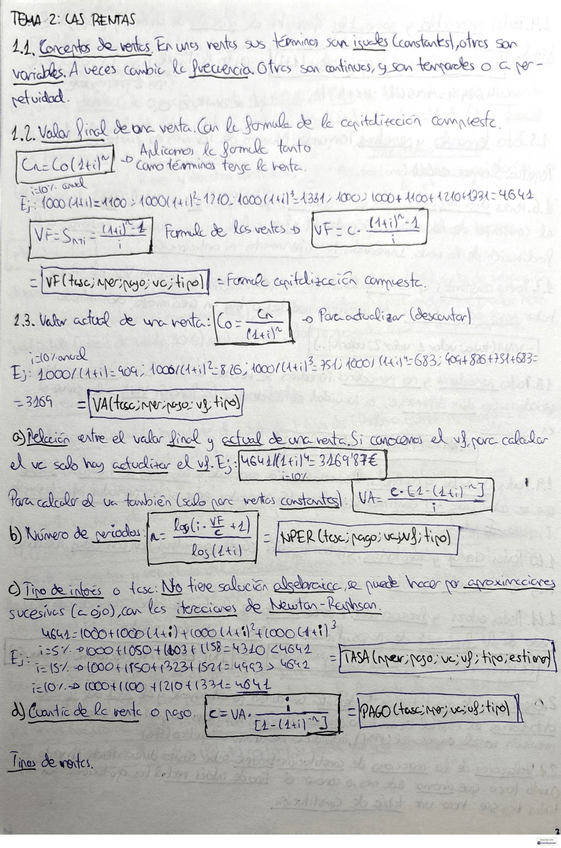 TEMA 2: LAS RENTAS
1.1. Conceptos de rentas. En unas rentas sus términos son iguales (constantes), otras son
variables. A veces cambia la frecuencia. Otras son continuas, y son temporales o a per-
petuidad.
1.2. Valor final de una renta. Con la formula de la capitalización compuesta.
Cn=Co(1+i)^n → Aplicamos la formula tanto
como términos tenga la renta.
i=10% anual
Ej: 1000(1+i)=1100; 1000(1+i)^2=1210; 1000(1+i)^3=1331; 1000; 1000+1100+1210+1331=4641
VF=S_n¬i=((1+i)^n-1)/i Formula de las rentas → VF=c·((1+i)^n-1)/i
= VF(tasa;nper;pago;va;tipo) = Formula capitalización compuesta.
1.3. Valor actual de una renta: Co=Cn/(1+i)^n → Para actualizar (descontar)
i=10% anual
Ej: 1000/(1+i)=909; 1000/(1+i)^2=826; 1000/(1+i)^3=751; 1000/(1+i)^4=683; 909+826+751+683=
=3169 = VA(tasa;nper;pago;vf;tipo)
a) Relación entre el valor final y actual de una renta. Si conocemos el vf, para calcular
el va solo hay actualizar el vf. Ej: 4641/(1+i)^4=3169'87€
i=10%
Para calcular el va también (solo para rentas constantes): VA=c·[1-(1+i)^-n]/i
b) Número de periodos: n=log(i·VF/c+1)/log(1+i) = NPER(tasa;pago;va;vf;tipo)
c) Tipo de interés o tasa: No tiene solución algebraica, se puede hacer por aproximaciones
sucesivas (a ojo), con las iteraciones de Newton-Raphson.
4641=1000+1000(1+i)+1000(1+i)^2+1000(1+i)^3
Ej: i=5% → 1000+1050+1103+1158=4310<4641
i=15% → 1000+1150+1323+1521=4993>4641 = TASA(nper;pago;va;vf;tipo;estimar)
i=10% → 1000+1100+1210+1331=4641
d) Cuantía de la renta o pago. c=VA·i/[1-(1+i)^-n] = PAGO(tasa;nper;va;vf;tipo)
Tipos de rentas.
2